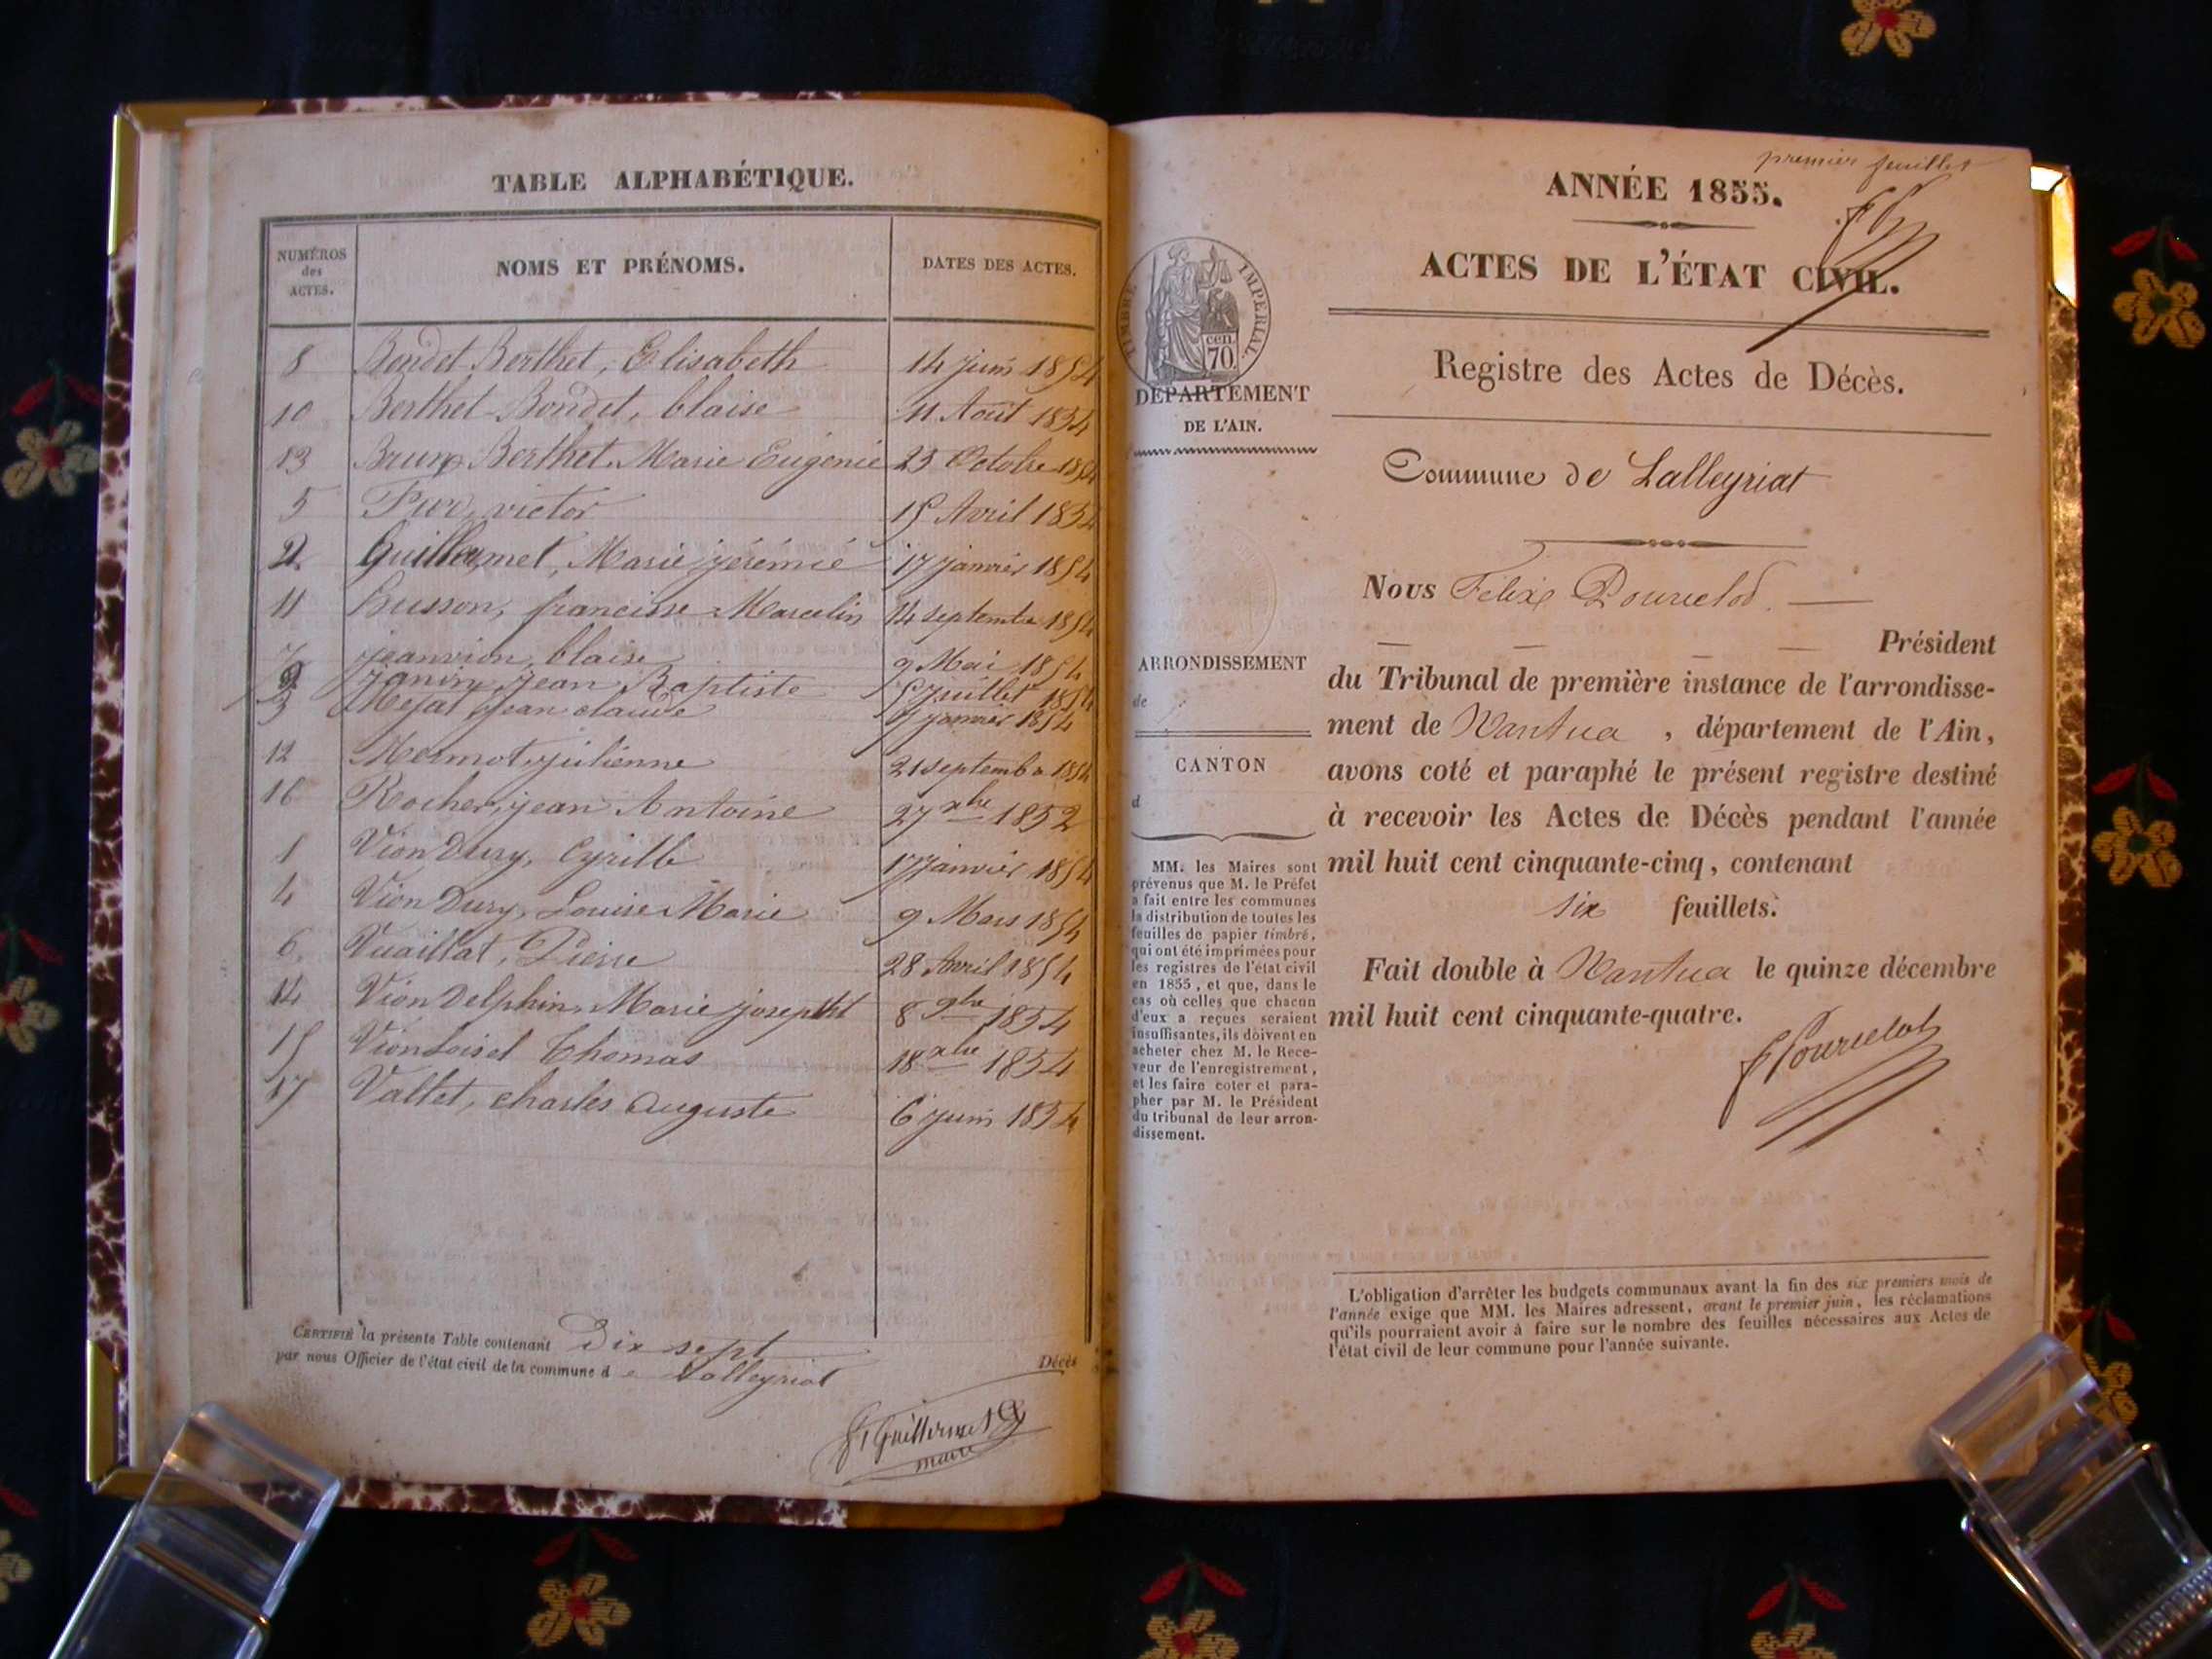 TABLE ALPHABÉTIQUE.
NUMÉROS des ACTES.
NOMS ET PRÉNOMS.
DATES DES ACTES.
8 Bondet Berthet, Elisabeth 14 juin 1854
10 Berthet-Bondet, blaise 11 Août 1854
13 Brun Berthet Marie Eugénie 23 Octobre 1854
5 victor 15 Avril 1854
2 Guillermet, Marie jérémie 17 janvier 1854
11 Husson, francisse Marcelin 14 septembre 1854
7 jeanvion, blaise 9 Mai 1854
9 janin, jean Baptiste 5 juillet 1854
3 Mejat jean claude janvier 1854
12 Mermot, julienne 21 septembre 1854
16 Rocher, jean Antoine 27 xbre 1852
1 Vion Dury, Cyrille 17 janvier 1854
4 Vion Dury, Louise Marie 9 Mars 1854
6. Vuaillat, Pierre 28 Avril 1854
14 Vion Delphin, Marie josephte 8 9bre 1854
15 Vion Loisel Thomas 18 xbre 1854
17 Vallet, charles auguste 6 juin 1854
CERTIFIÉ la présente Table contenant Dix sept Décès
par nous Officier de l'état civil de la commune de Lalleyriat
Guillermet
maire
premier feuillet
ANNÉE 1855.
ACTES DE L'ÉTAT CIVIL.
TIMBRE IMPÉRIAL.
cen.
70.
DÉPARTEMENT
DE L'AIN.
Registre des Actes de Décès.
Commune de Lalleyriat
Nous Felix Pourcelot.
Président
du Tribunal de première instance de l'arrondisse-
ment de Nantua, département de l'Ain,
avons coté et paraphé le présent registre destiné
à recevoir les Actes de Décès pendant l'année
mil huit cent cinquante-cinq, contenant
six feuillets.
Fait double à Nantua le quinze décembre
mil huit cent cinquante-quatre.
F Pourcelot
ARRONDISSEMENT
de
CANTON
d
MM. les Maires sont
prévenus que M. le Préfet
a fait entre les communes
la distribution de toutes les
feuilles de papier timbré,
qui ont été imprimées pour
les registres de l'état civil
en 1855, et que, dans le
cas où celles que chacun
d'eux a reçues seraient
insuffisantes, ils doivent en
acheter chez M. le Rece-
veur de l'enregistrement,
et les faire coter et para-
pher par M. le Président
du tribunal de leur arron-
dissement.
L'obligation d'arrêter les budgets communaux avant la fin des six premiers mois de
l'année exige que MM. les Maires adressent, avant le premier juin, les réclamations
qu'ils pourraient avoir à faire sur le nombre des feuilles nécessaires aux Actes de
l'état civil de leur commune pour l'année suivante.